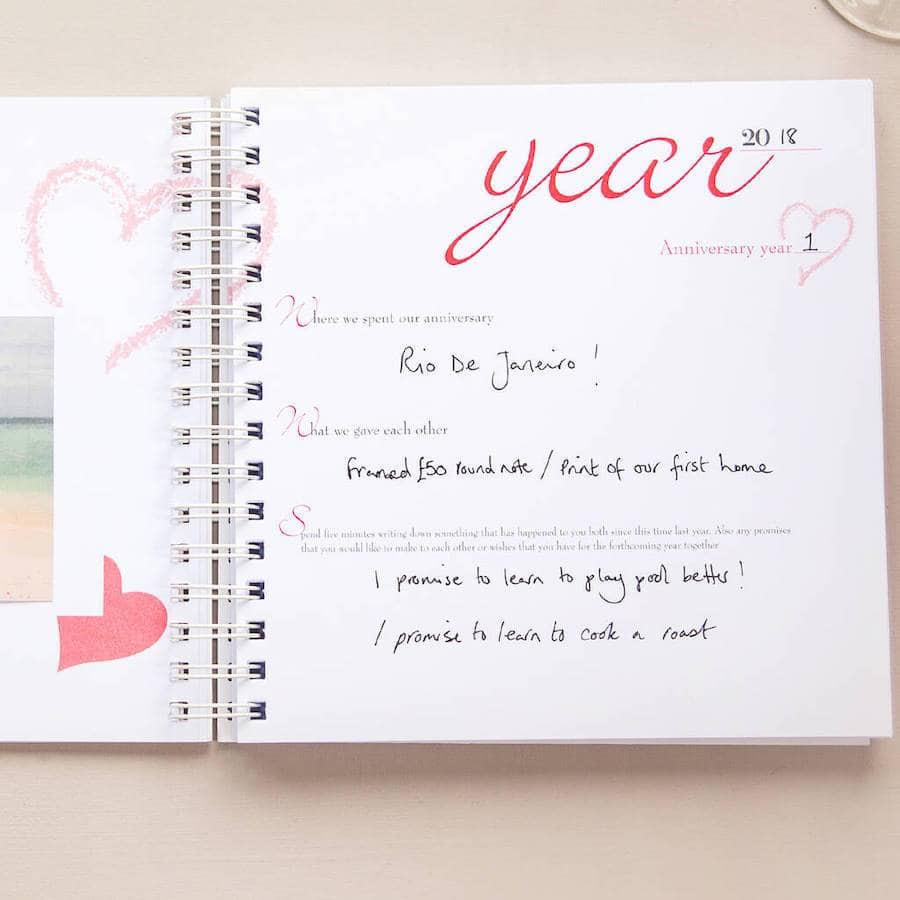 year 2018
Anniversary year 1
Where we spent our anniversary
Rio De Janeiro!
What we gave each other
framed £50 round note / Print of our first home
Spend five minutes writing down something that has happened to you both since this time last year. Also any promises
that you would like to make to each other or wishes that you have for the forthcoming year together
I promise to learn to play pool better!
I promise to learn to cook a roast